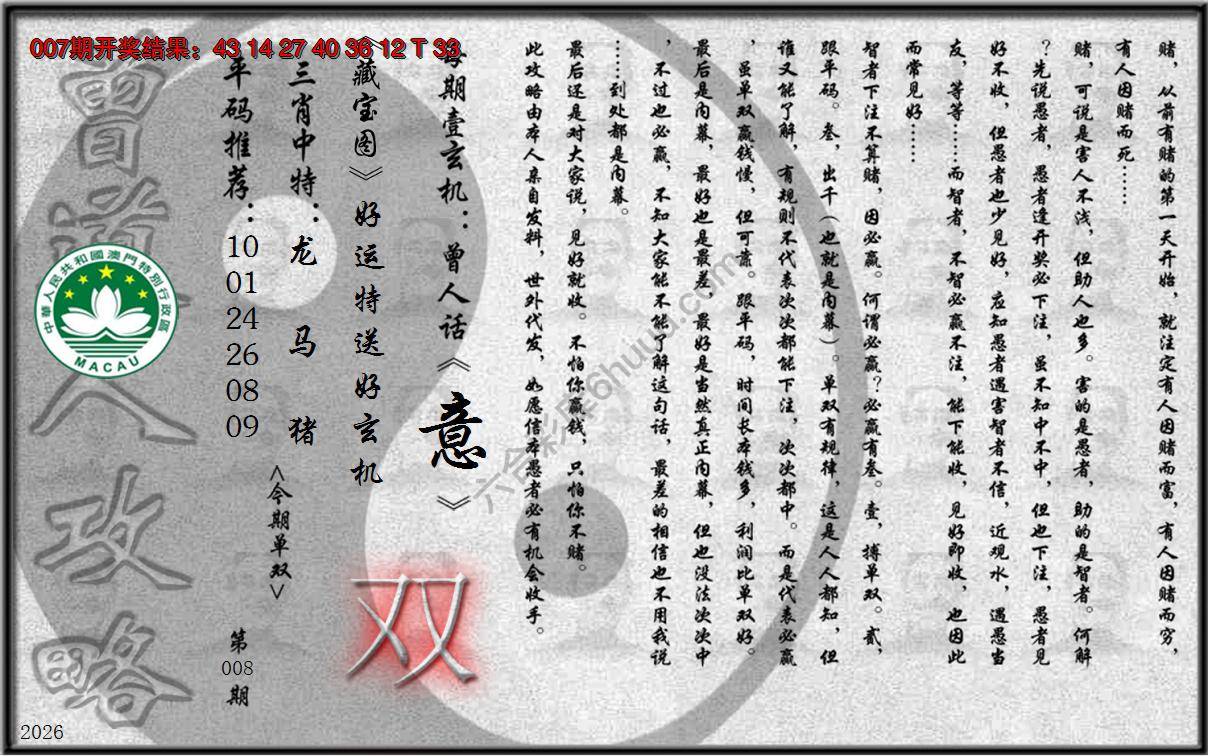 007期开奖结果：43 14 27 40 36 12 T 33
赌，从前有赌的第一天开始，就注定有人因赌而富，有人因赌而穷，
有人因赌而死……
赌，可说是害人不浅，但助人也多。害的是愚者，助的是智者。何解
？先说愚者，愚者逢开奖必下注，虽不知中不中，但也下注，愚者见
好不收，但愚者也少见好，应知愚者遇害智者不信，近观水，遇愚当
友，等等……而智者，不智必赢不注，能下能收，见好即收，也因此
而常见好……
智者下注不算赌，因必赢。何谓必赢？必赢有叁。壹，搏单双。贰，
跟平码。叁，出千（也就是内幕）。单双有规律，这是人人都知，但
谁又能了解，有规则不代表次次都能下注，次次都中。而是代表必赢
，虽单双赢钱慢，但可靠。跟平码，时间长本钱多，利润比单双好。
最后是内幕，最好也是最差，最好是当然真正内幕，但也没法次次中
，不过也必赢，不知大家能不能了解这句话，最差的相信也不用我说
……到处都是内幕。
最后还是对大家说，见好就收。不怕你赢钱，只怕你不赌。
此攻略由本人亲自发料，世外代发，如愿信本愚者必有机会收手。
每期壹玄机：曾人话《意》
《藏宝图》好运特送好玄机
双
三肖中特：龙 马 猪
<今期单双>
平码推荐：10 01 24 26 08 09
第008期
曾道人攻略
中華人民共和國澳門特別行政區
MACAU
六合彩库6huuu.com
2026